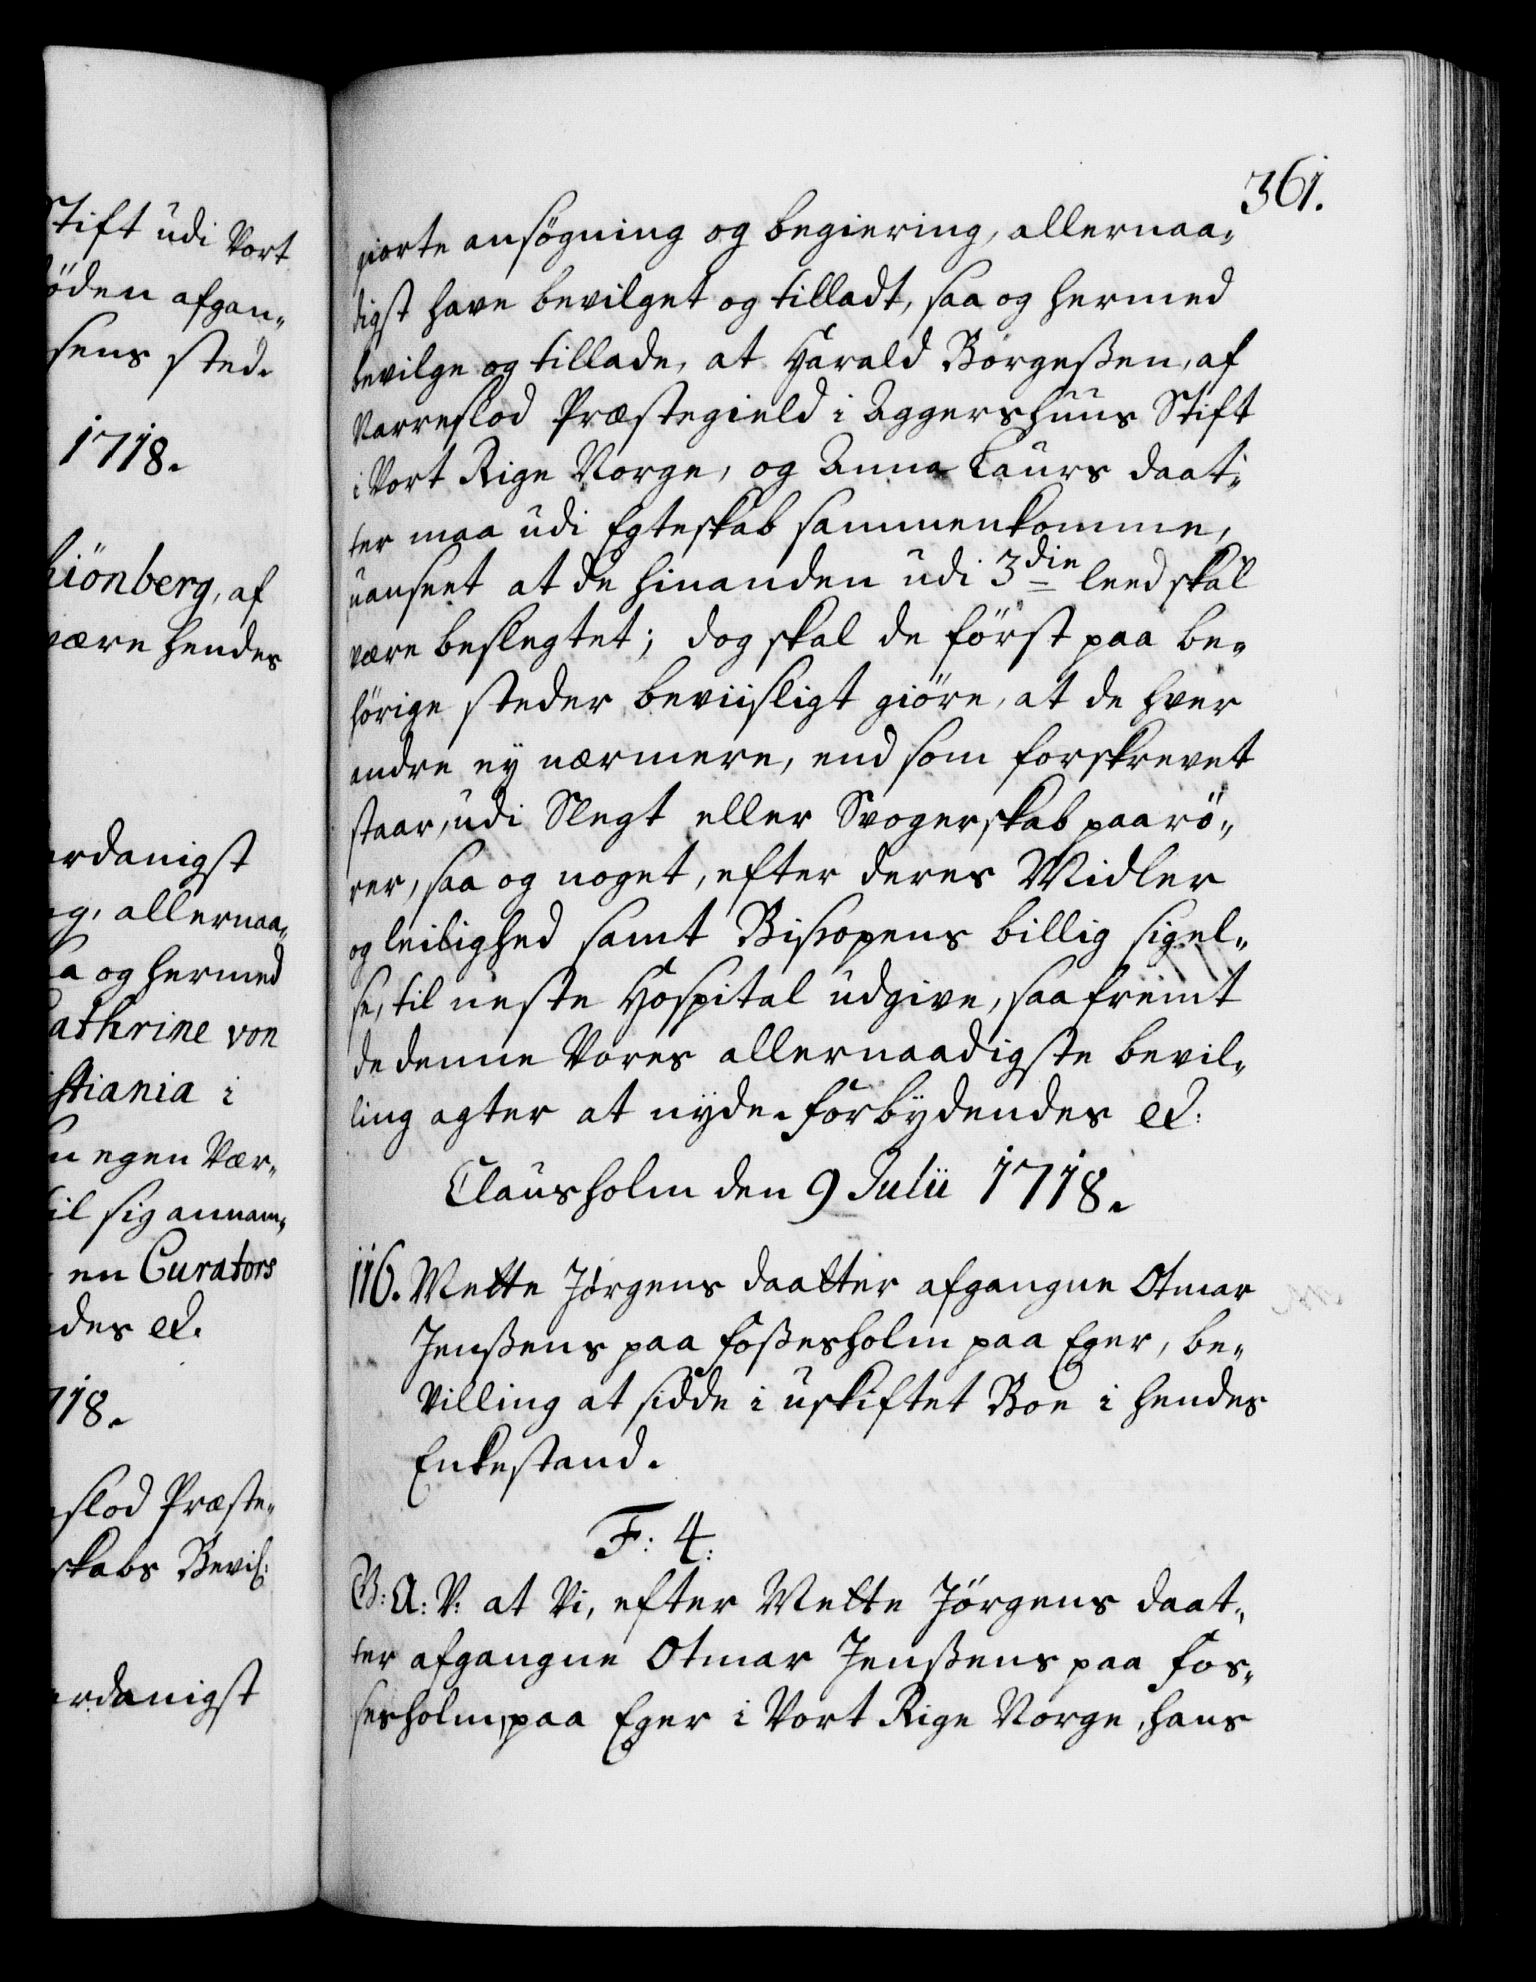 Stift udi Vort
döden afgan„
sens sted.
1718.
kiönberg, af
være hendes
erdanigst
allernaa„
og hermed
Cathrine von
stiania i
egen Vær„
til sig annam„
en Curators
des etc.
1718.
slod Præste„
skabs Bevil:
erdanigst
361.
giorte ansögning og begiering, allernaa„
digst have bevilget og tilladt, saa og hermed
bevilge og tillade, at Harald Börgeßen, af
Narreslod Præstegield i Aggershuus Stift
i Vort Rige Norge, og Anna Laurs daat„
ter maa udi Egteskab sammenkomme,
uanseet at de hinanden udi 3die leed skal
være beslegtet; dog skal de först paa be„
hörige steder beviisligt giöre, at de hver
andre ey nærmere, end som forskrevet
staar, udi Slegt eller Svogerskab paarö„
rer, saa og noget, efter deres Midler
og leilighed samt Biscopens billig sigel„
se, til neste Hospital udgive, saafremt
de denne Vores allernaadigste bevil„
ling agter at nyde. Forbydendes etc:
Clausholm den 9 Julii 1718.
116. Mette Jörgens daatter afgangne Otmar
Jenßens paa Foßesholm paa Eger, be„
villing at sidde i uskiftet Boe i hendes
Enkestand.
F: 4:
G: A: V: at Vi, efter Mette Jörgens daat„
ter afgangne Otmar Jenßens paa Fos„
sesholm, paa Eger i Vort Rige Norge, hans